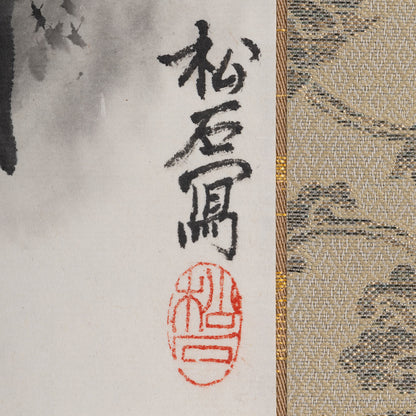 松石寫
松石